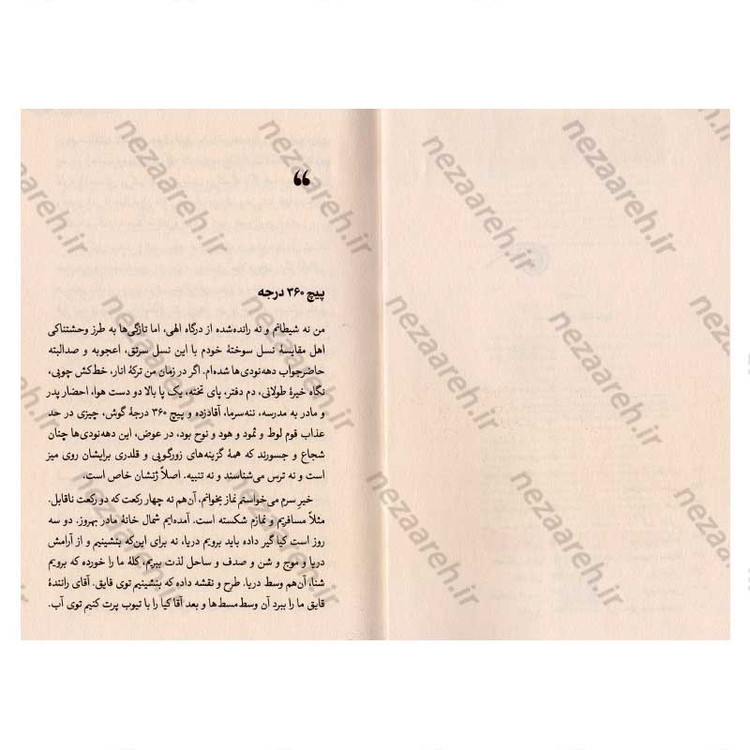 “
پیچ ۳۶۰ درجه
من نه شیطانم و نه رانده‌شده از درگاه الهی، اما تازگی‌ها به طرز وحشتناکی
اهل مقایسهٔ نسل سوختهٔ خودم با این نسل سرتق، اعجوبه و صدالبته
حاضرجواب دهه‌نودی‌ها شده‌ام. اگر در زمان من ترکهٔ انار، خط‌کش چوبی،
نگاه خیرهٔ طولانی، دم دفتر، پای تخته، یک پا بالا دو دست هوا، احضار پدر
و مادر به مدرسه، ننه‌سرما، آقادزده و پیچ ۳۶۰ درجهٔ گوش، چیزی در حد
عذاب قوم لوط و ثمود و هود و نوح بود، در عوض، این دهه‌نودی‌ها چنان
شجاع و جسورند که همهٔ گزینه‌های زورگویی و قلدری برایشان روی میز
است و نه ترس می‌شناسند و نه تنبیه. اصلاً ژنشان خاص است.
خیر سرم می‌خواستم نماز بخوانم، آن‌هم نه چهار رکعت که دو رکعت ناقابل.
مثلاً مسافریم و نمازم شکسته است. آمده‌ایم شمال خانهٔ مادر بهروز. دو سه
روز است کیا گیر داده باید برویم دریا، نه برای این‌که بنشینیم و از آرامش
دریا و موج و شن و صدف و ساحل لذت ببریم، کلهٔ ما را خورده که برویم
شنا، آن‌هم وسط دریا. طرح و نقشه داده که بنشینیم توی قایق. آقای رانندهٔ
قایق ما را ببرد آن وسط‌مسط‌ها و بعد آقا کیا را با تیوب پرت کنیم توی آب.
nezaareh.ir
nezaareh.ir
nezaareh.ir
nezaareh.ir
nezaareh.ir
nezaareh.ir
nezaareh.ir
nezaareh.ir